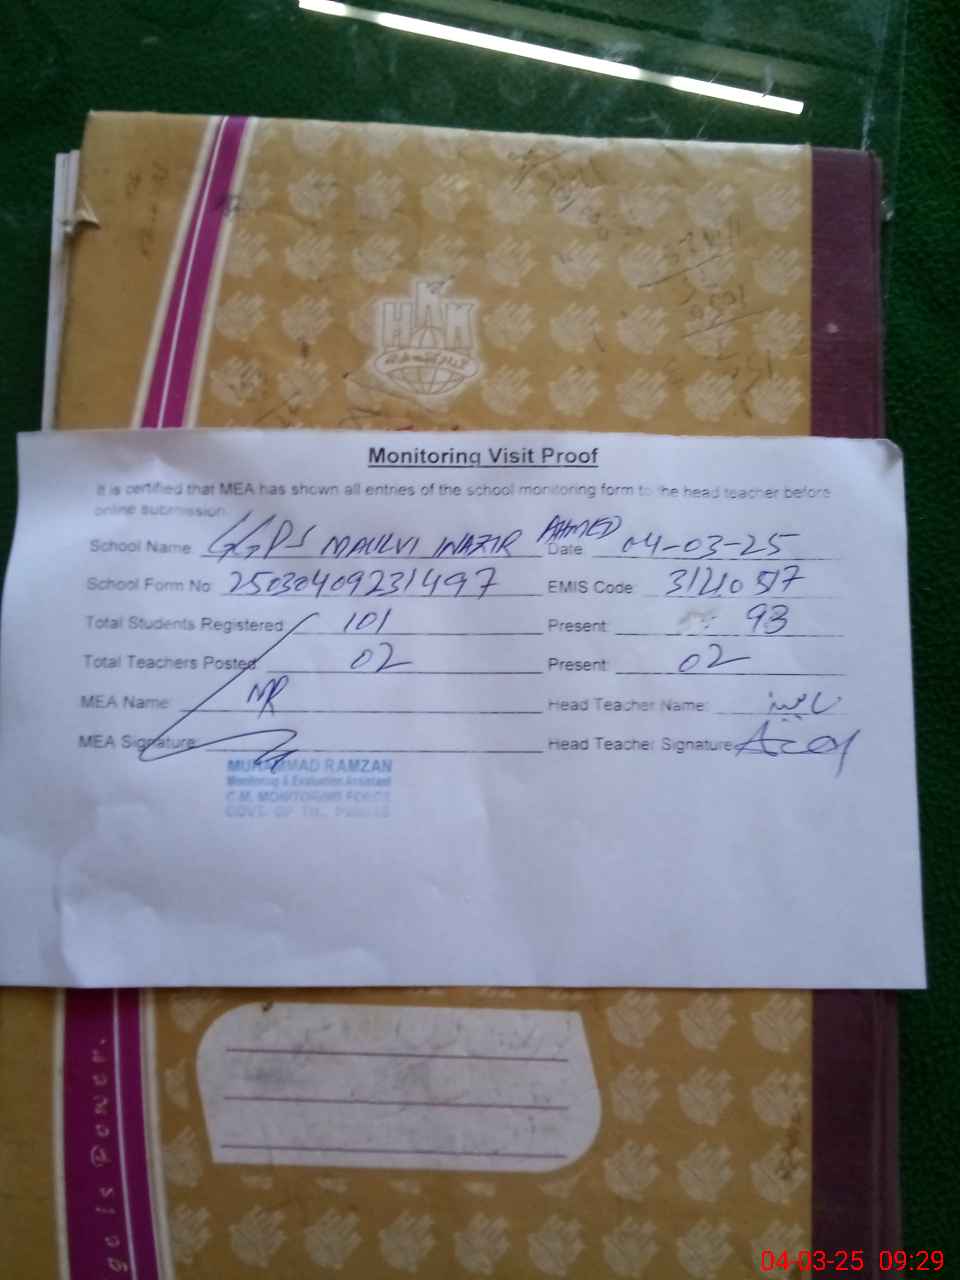 HAN
Monitoring Visit Proof
It is certified that MEA has shown all entries of the school monitoring form to the head teacher before
online submission
School Name: GGPS MAULVI NAZIR AHMED Date: 04-03-25
School Form No: 25030409231497 EMIS Code: 31210517
Total Students Registered 101 Present: 93
Total Teachers Posted: 02 Present: 02
MEA Name: MR Head Teacher Name:
MEA Signature: Head Teacher Signature
MUHAMMAD RAMZAN
Monitoring & Evaluation Assistant
C.M. MONITORING FORCE
GOVT. OF THE PUNJAB
ge is Power.
04-03-25 09:29